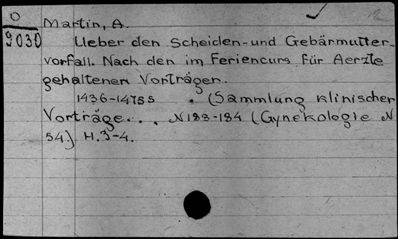 O
9030
Martin, A.
Ueber den Scheiden- und Gebärmutter-
vorfall. Nach den im Feriencurs für Aerzte
gehaltenen Vorträgen.
1436-1475S . (Sammlung klinischer
Vorträge... N183-184 (Gynekologie N
54.) H.3-4.